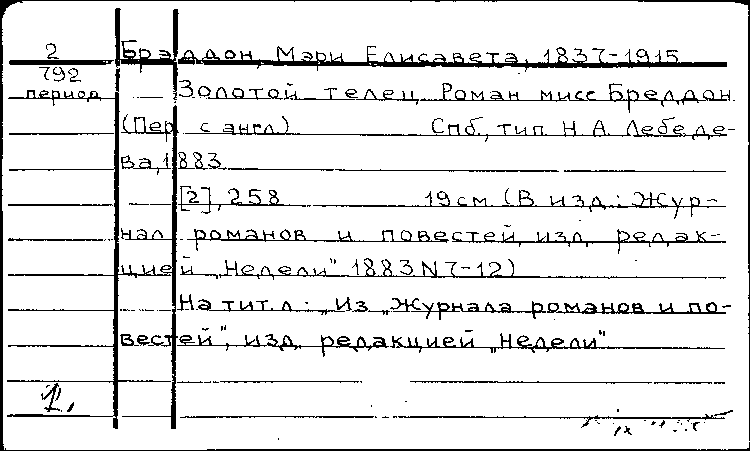 2 Брэддон, Мэри Елисавета, 1837-1915
792
период Золотой телец. Роман мисс Брэддон
(Пер. с англ.) Спб, тип. Н. А. Лебеде-
ва, 1883
[2], 258 19 см (В изд.: Жур-
нал романов и повестей, изд. редак-
цией „Недели" 1883 N 7-12)
На тит. л.: „Из „Журнала романов и по-
вестей", изд. редакцией „Недели"